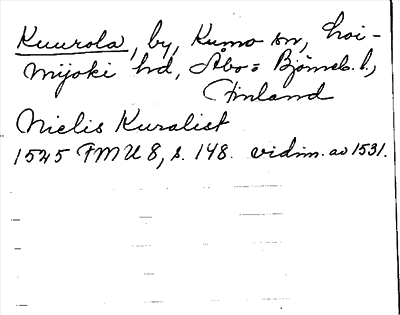 Kuurola, by, Kumo sn, Loi-
mijoki hd, Åbo = Björneb. l.,
Finland
Nielis Kuralist
1525 FMU 8, s. 148. vidim. av 1531.